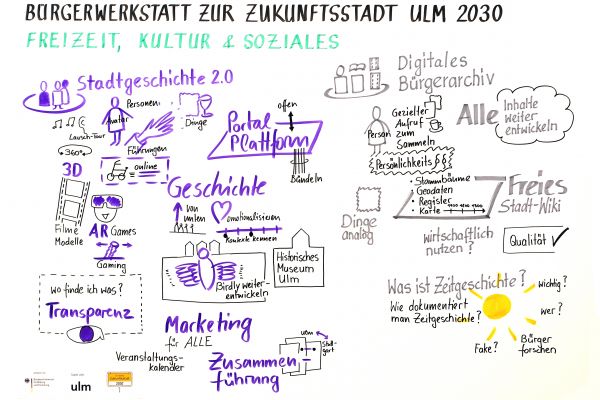 BÜRGERWERKSTATT ZUR ZUKUNFTSSTADT ULM 2030
FREIZEIT, KULTUR & SOZIALES
Stadtgeschichte 2.0
Personen
Avatar
Dinge
Lausch-Tour
360°
Führungen
= online
3D
Filme
Modelle
AR Games
Gaming
offen
Portal
Plattform
Bündeln
Geschichte
von
unten
emotionalisieren
Kontexte kennen
Birdly weiter-
entwickeln
Historisches
Museum
Ulm
wo finde ich was?
Transparenz
Marketing
für ALLE
Veranstaltungs-
kalender
Zusammen-
führung
ulm
Stutt-
gart
ulm
Digitales
Bürgerarchiv
Person
Gezielter
Aufruf
zum
Sammeln
Persönlichkeits §§
Alle
Inhalte
weiter
entwickeln
Stammbäume
Geodaten
Register
Karte
Dinge
analog
Freies
Stadt-Wiki
wirtschaftlich
nutzen?
Qualität ✓
Was ist Zeitgeschichte?
Wie dokumentiert
man Zeitgeschichte?
wichtig?
wer?
Fake?
Bürger
forschen